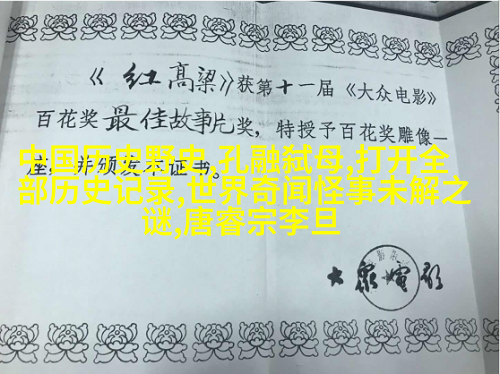 《红高粱》获第十一届《大众电影》
百花奖最佳故事片奖，特授予百花奖雕像一
座，并颁发本证书。
中国历史野史,孔融弑母,打开全
部历史记录,世界奇闻怪事未解之
谜,唐睿宗李旦
大众电影